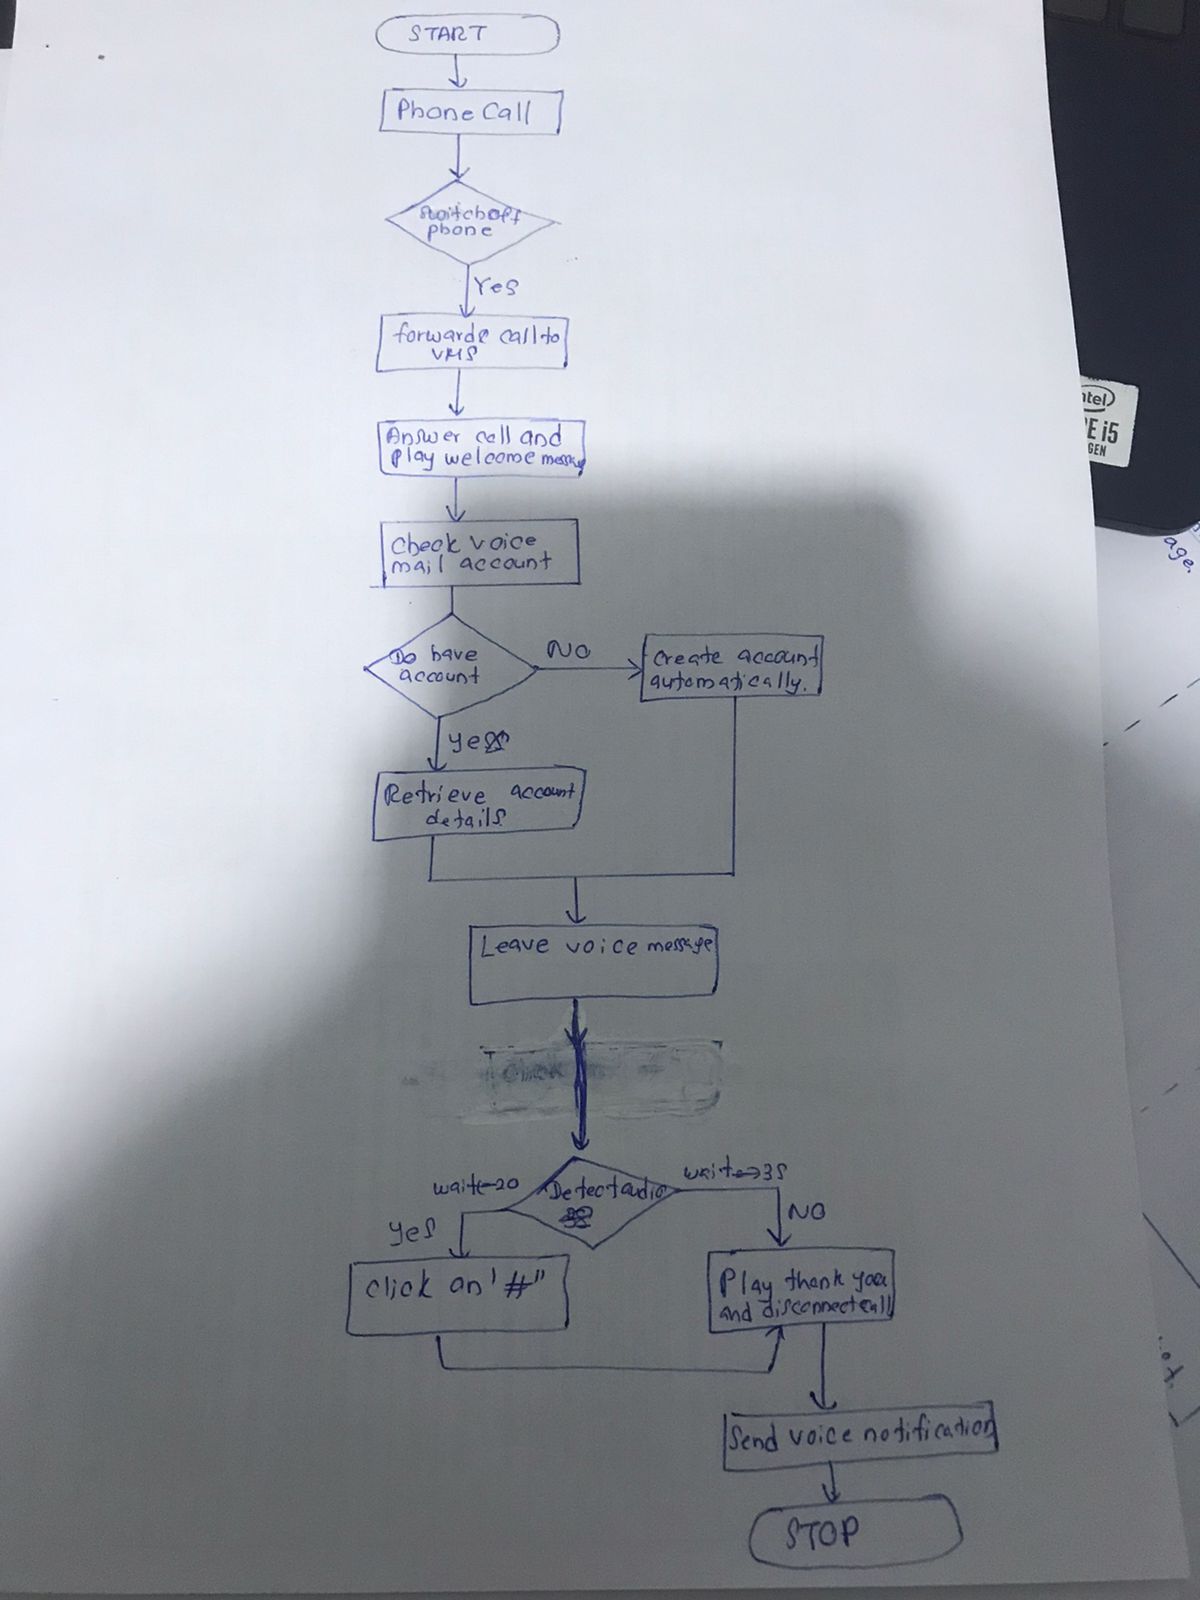 START
Phone Call
Switchoff
phone
Yes
forwards call to
VMS
Answer call and
play welcome message
Check voice
mail account
Do have
account
NO
Create account
automatically.
yes
Retrieve account
details
Leave voice message
Click
wait
Detect audio
wait
yes
NO
Click on '#"
Play thank you
and disconnect call
Send voice notification
STOP
intel
E i5
GEN
age.